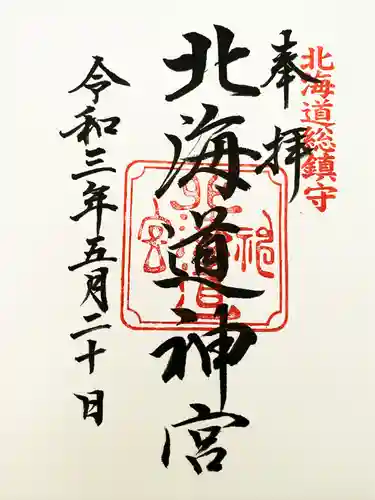 北海道総鎮守
奉拝
北海道神宮
令和三年五月二十日